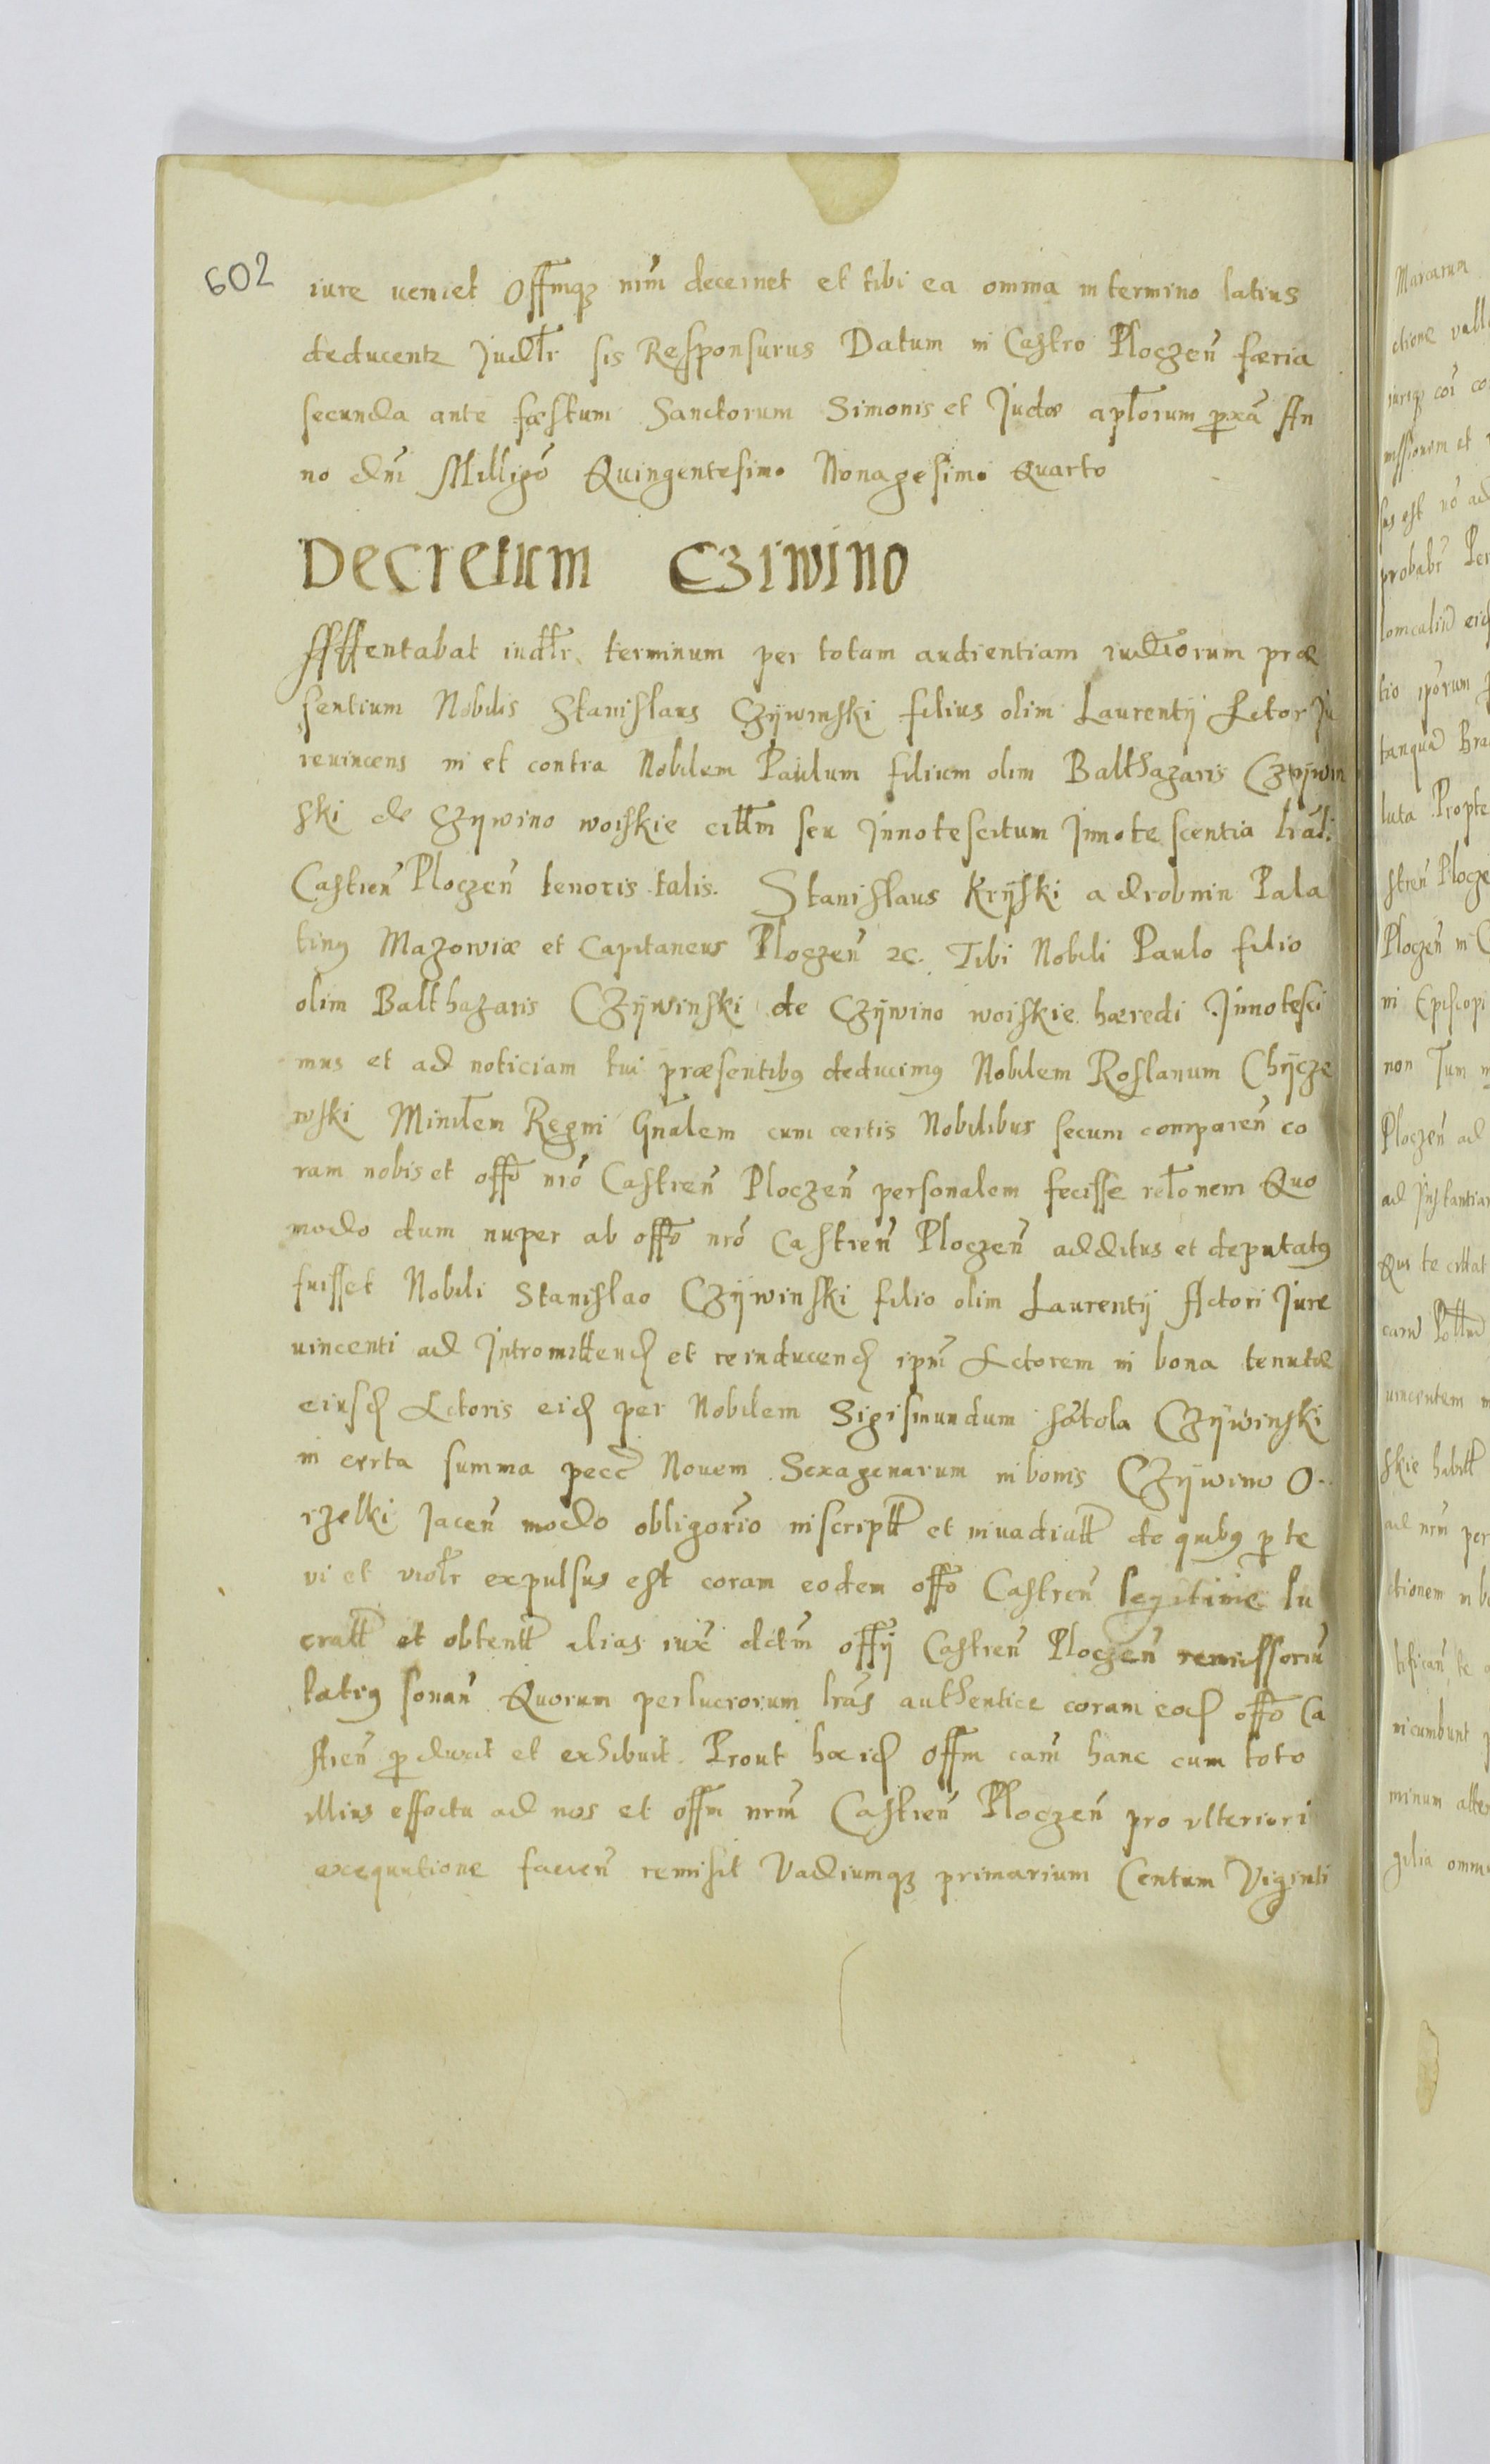 602
iure ueniet Offmqʒ nrm̄ decernet et tibi ea omnia in termino latius
deducentr Judltr sis Responsurus Datum in Castro Ploczen̄ færia
secunda ante fæstum Sanctorum Simonis et Judæ apl̄orum prxā An
no dnī Milligō Quingentesimo Nonagesimo Quarto
Decretum Cziwino
Attentabat iudltr terminum per totam audientiam iudiorum præ
sentium Nobilis Stanislaus Czÿwinski filius olim Laurentÿ Actor Ju
reuincens in et contra Nobilem Paulum filium olim Balthazaris Czÿwin
ski de Czywino woiskie citt̄m seu Jnnotescitum Jnnotescentia lrāli
Castren̄ Ploczen̄ tenoris talis. Stanislaus Krÿski a drobnin Pala
tinꝰ Mazowiæ et Capitaneus Ploczen̄ ꝛc. Tibi Nobili Paulo filio
olim Balthazaris Czÿwinski de Czÿwino woiskie hæredi Jnnotesci
mus et ad noticiam tui præsentibꝰ deducimꝰ Nobilem Roslanum Chÿcze
wski Minitl̄em Regni Gn̄alem cum certis Nobilibus secum comparen̄ co
ram nobis et offō nrō Castren̄ Ploczen̄ personalem fecisse retl̄onem Quo
modo dum nuper ab offō nrō Castren̄ Ploczen̄ additus et deputatꝰ
fuisset Nobili Stanislao Czÿwinski filio olim Laurentÿ Actori Jure
uincenti ad Jntromittend et reinducend ipm̄ Actorem in bona tenutæ
eiusd Actoris eid per Nobilem Sigismundum Sȯtola Czÿwinski
in certa summa pecc̄ Nouem Sexagenarum in bonis Czÿwino O
rzelki Jacen̄ modo obligor̄io inscriptt et inuadiatt de quibꝰ p te
vi et violtr expulsus est coram eodem offō Castren̄ legitime lu
cratt et obtentt alias iux̄ dctm̄ offÿ Castren̄ Ploczen̄ remissoriū
latiꝰ sonan̄ Quorum perlucrorum lrās authentice coram eod offō Ca
stren̄ pduxit et exhibuit. Prout hæ id Offm cam̄ hanc cum toto
illius effectu ad nos et offm nrm̄ Castren̄ Ploczen̄ pro vlteriori
exequutione facien̄ remisit Vadiumqʒ primarium Centum Viginti
Marcarum
ctione vall
iurqʒ coī co
nissionem et
sus est nō ad
probabr Per
tio ipōrum
tanquā
luta Propte
stren̄ Plocze
Ploczen̄ in C
ni Episcopi
non Tum
Ploczen̄ ad
ad Jnstantiam
Qui te cittat
uincentem
skie habitt
ad nrm̄ per
ctionem in b
tifican̄ te
incumbunt
minum atte
gilia omni